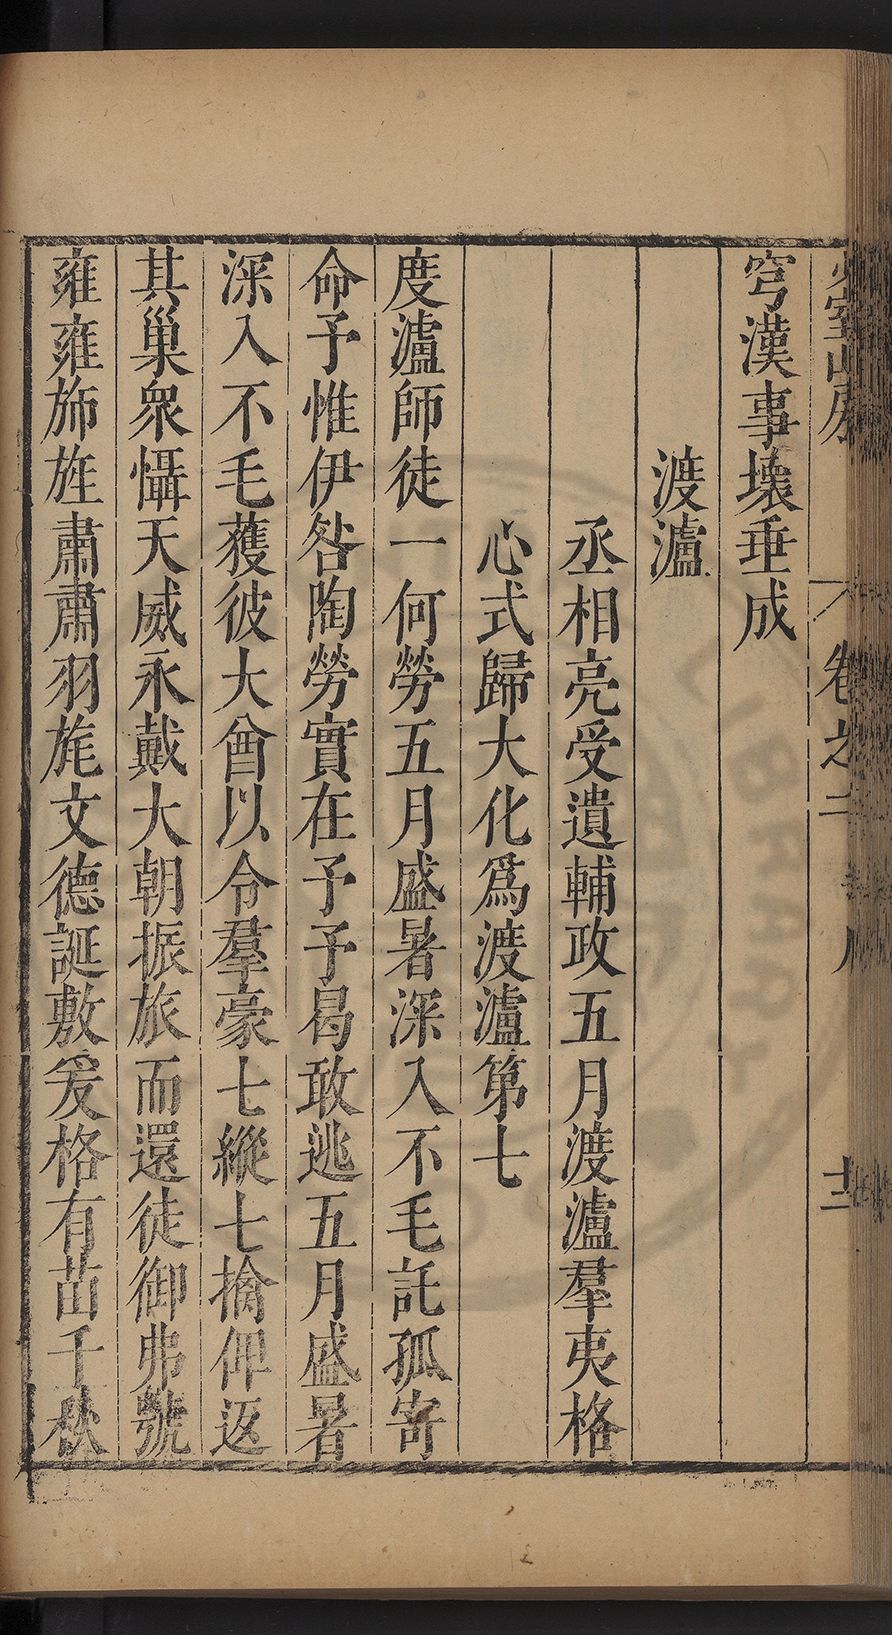 少室山房
卷之二
十二
穹漢事壊垂成
渡瀘
丞相亮受遺輔政五月渡瀘羣夷格
心式歸大化爲渡瀘第七
度瀘師徒一何勞五月盛暑深入不毛託孤寄
命予惟伊咎陶勞實在予予曷敢逃五月盛暑
深入不毛獲彼大酋以令羣豪七縱七擒俾返
其巢衆懾天威永戴大朝振旅而還徒御弗號
雍雍斾旌肅肅羽旄文德誕敷爰格有苗千秋